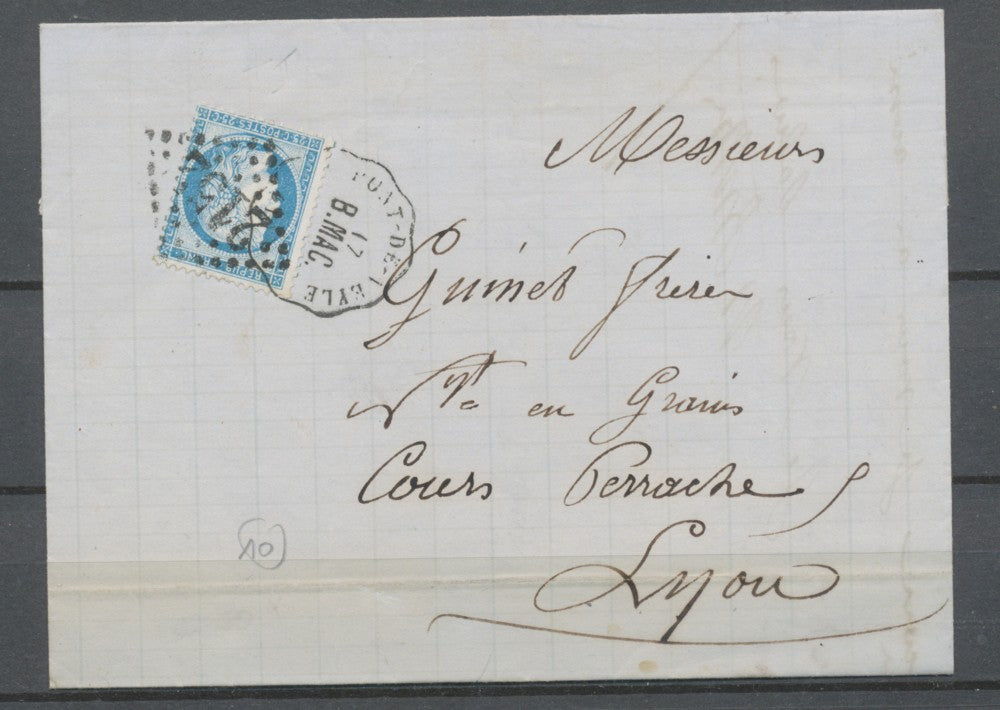 25 C. POSTES 25 C.
REPUB. FRANC.
PONT-DE-VEYLE
17
B.MAC.
Messieurs
Guinet frères
Mds en Grains
Cours Perrache
Lyon
10